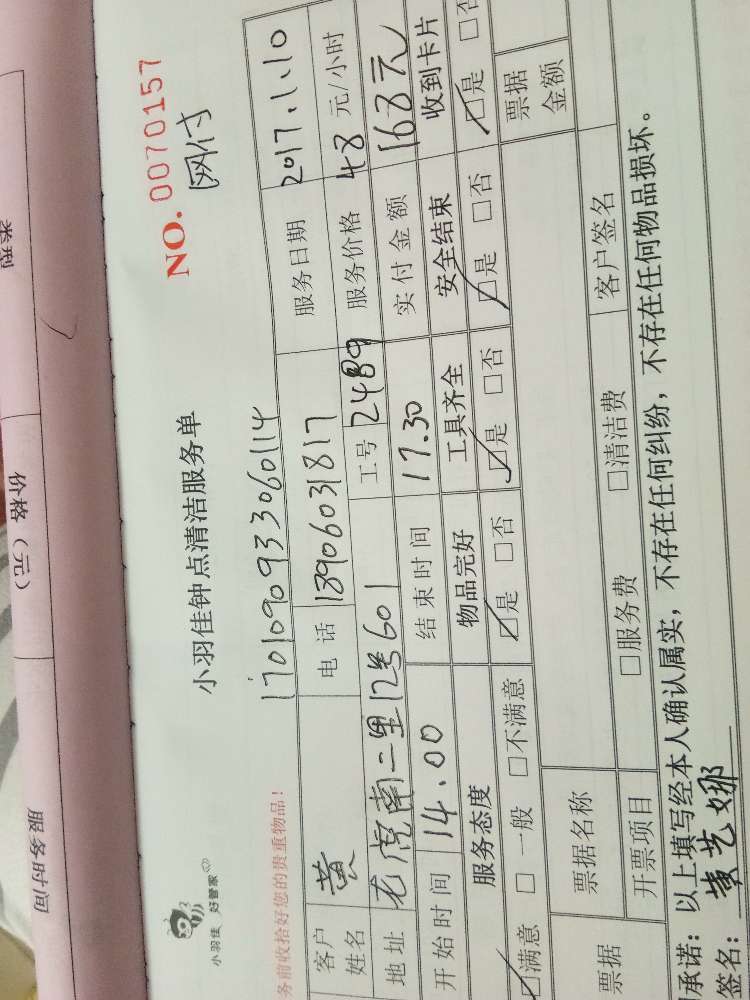 类型
价格（元）
服务时间
小羽佳 好管家
小羽佳钟点清洁服务单
NO. 0070157
网付
务前收拾好您的贵重物品！
1701090933060114
客户姓名 黄 电话 13906031817 服务日期 2017.1.10
地址 龙虎南二里12号601 工号 2489 服务价格 48 元/小时
开始时间 14.00 结束时间 17.30 实付金额 168元
服务态度 物品完好 工具齐全 安全结束 收到卡片
□满意 □一般 □不满意 □是 □否 □是 □否 □是 □否 □是 □否
票据 票据名称 票据金额
开票项目 □服务费 □清洁费 客户签名
承诺：以上填写经本人确认属实，不存在任何纠纷，不存在任何物品损坏。
签名：黄艺娜